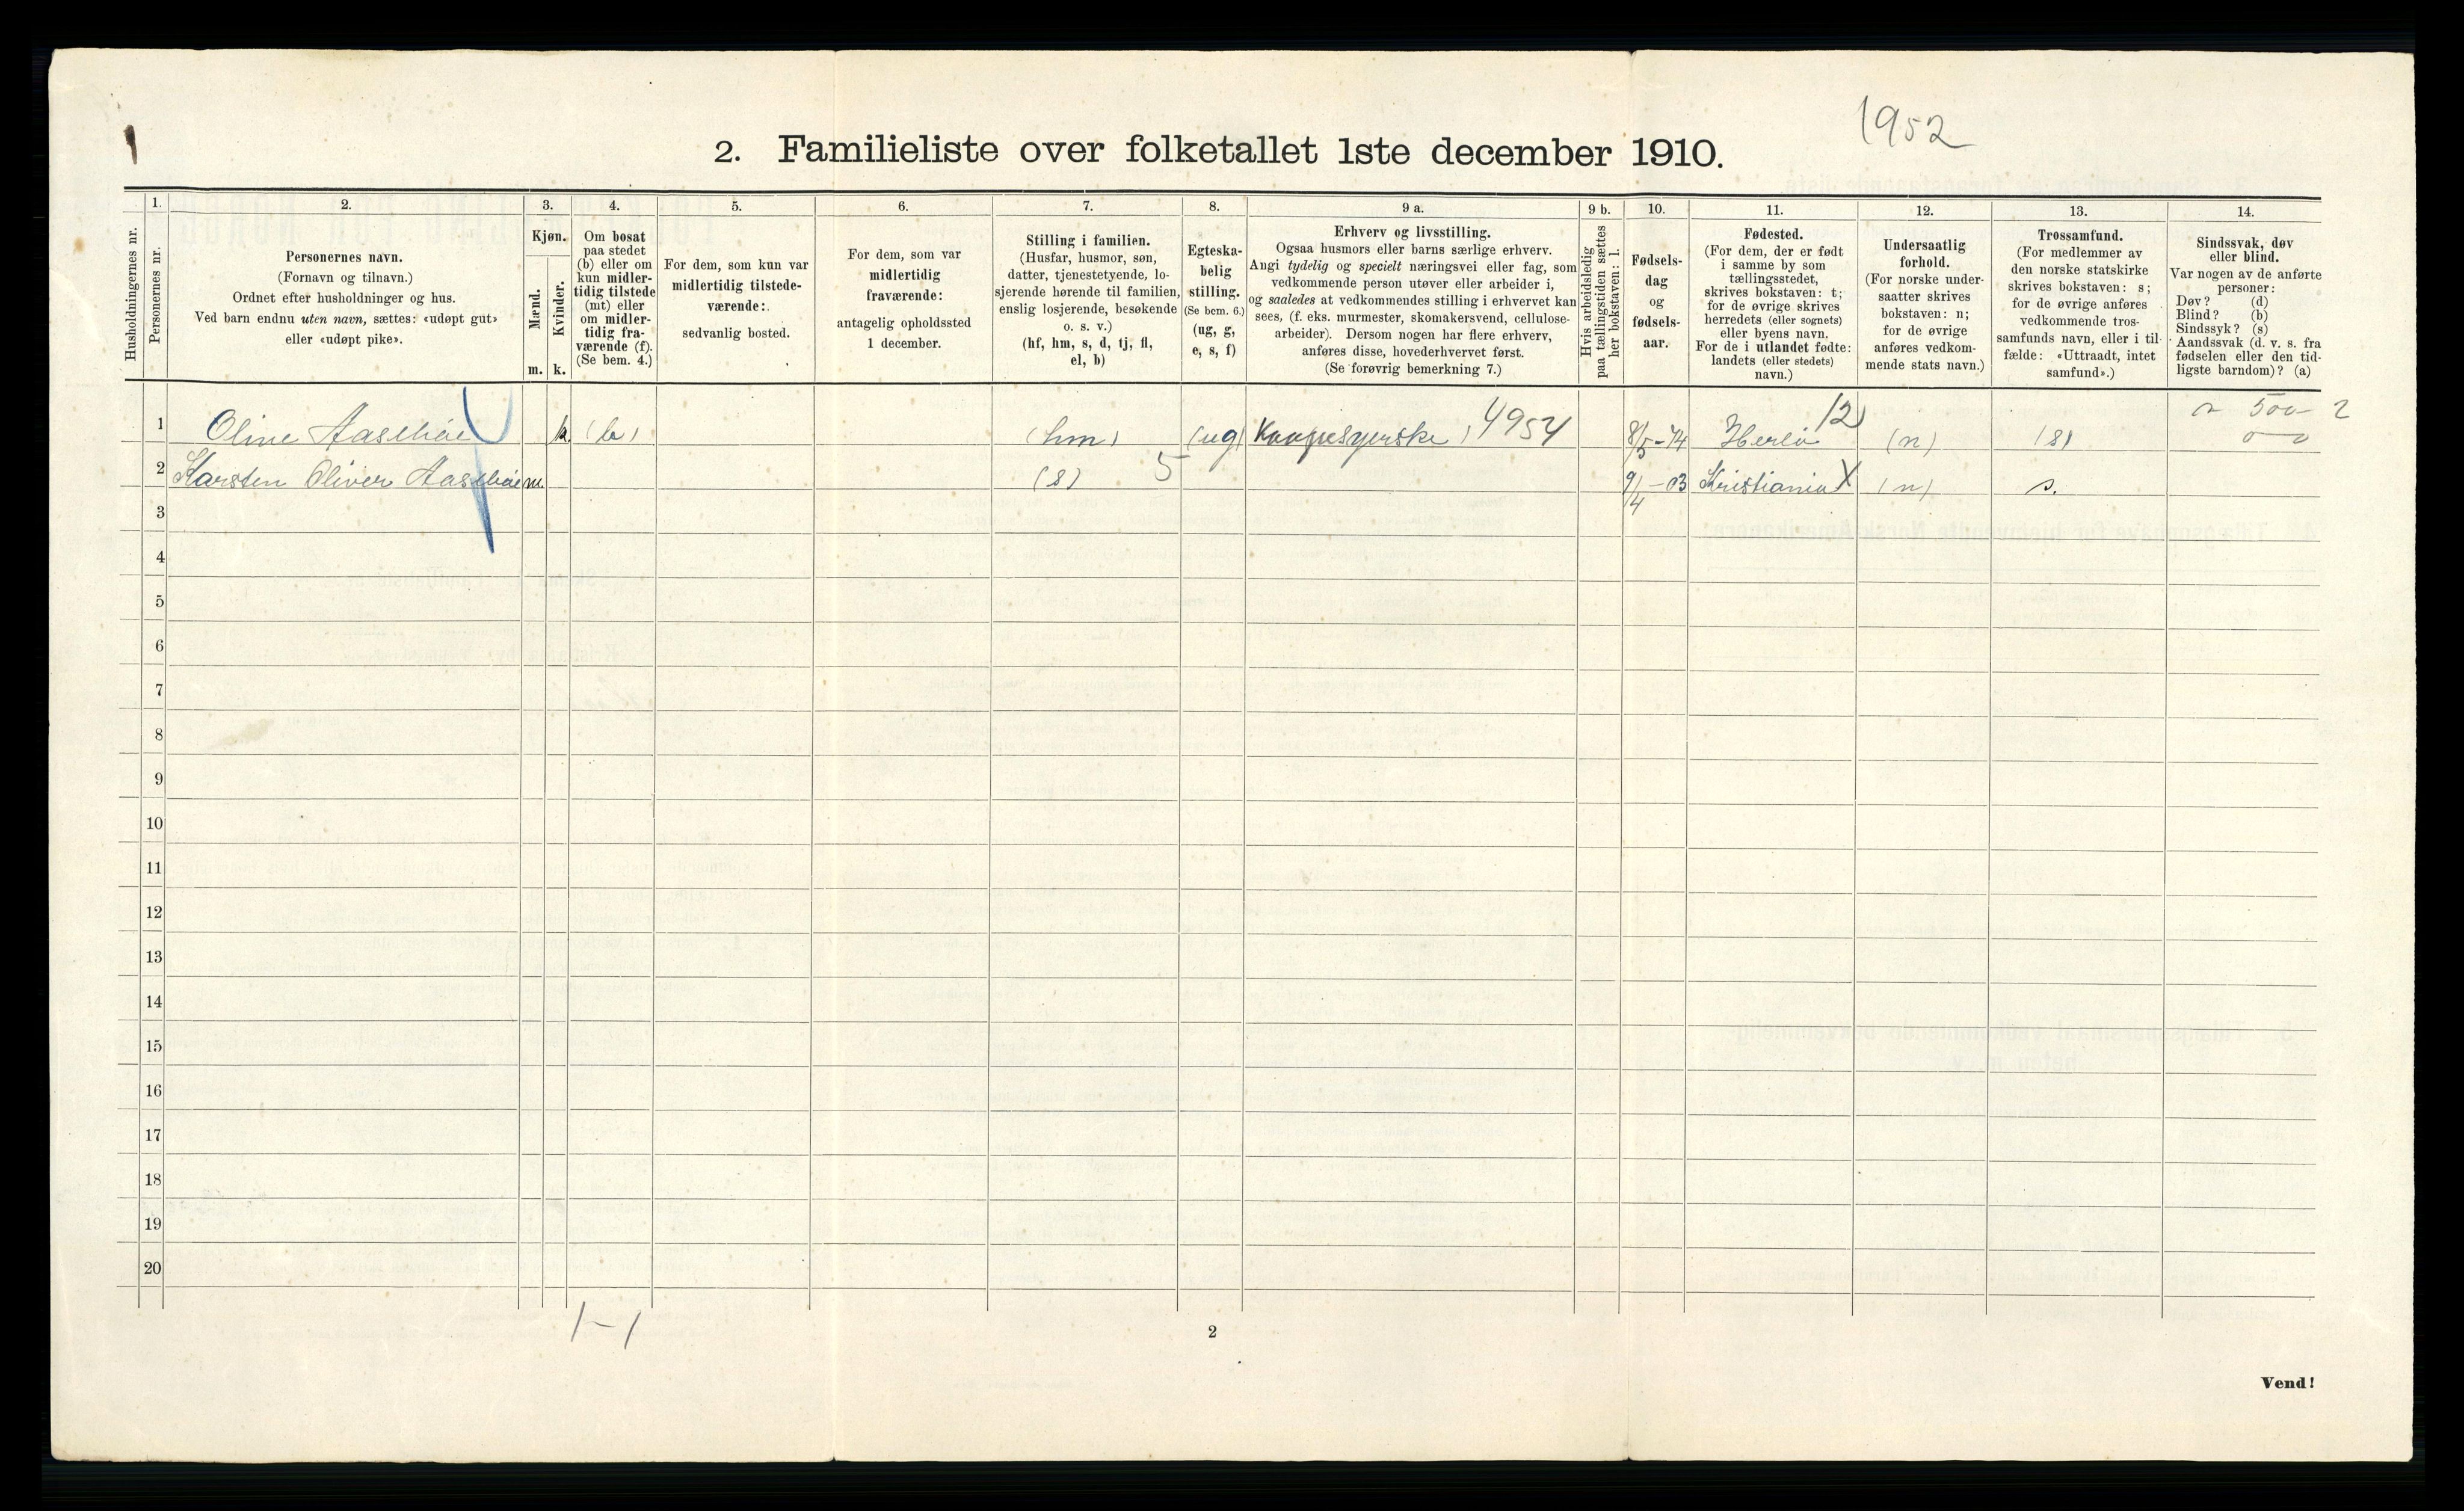 1952
2. Familieliste over folketallet 1ste december 1910.
Husholdningernes nr.
1.
Personernes nr.
2.
Personernes navn.
(Fornavn og tilnavn.)
Ordnet efter husholdninger og hus.
Ved barn endnu uten navn, sættes: «udøpt gut»
eller «udøpt pike».
3.
Kjøn.
Mænd.
Kvinder.
m. k.
4.
Om bosat
paa stedet
(b) eller om
kun midler-
tidig tilstede
(mt) eller
om midler-
tidig fra-
værende (f).
(Se bem. 4.)
5.
For dem, som kun var
midlertidig tilstede-
værende:
sedvanlig bosted.
6.
For dem, som var
midlertidig
fraværende:
antagelig opholdssted
1 december.
7.
Stilling i familien.
(Husfar, husmor, søn,
datter, tjenestetyende, lo-
sjerende hørende til familien,
enslig losjerende, besøkende
o. s. v.)
(hf, hm, s, d, tj, fl,
el, b)
8.
Egteska-
belig
stilling.
(Se bem. 6.)
(ug, g,
e, s, f)
9 a.
Erhverv og livsstilling.
Ogsaa husmors eller barns særlige erhverv.
Angi tydelig og specielt næringsvei eller fag, som
vedkommende person utøver eller arbeider i,
og saaledes at vedkommendes stilling i erhvervet kan
sees, (f. eks. murmester, skomakersvend, cellulose-
arbeider). Dersom nogen har flere erhverv,
anføres disse, hovederhvervet først.
(Se forøvrig bemerkning 7.)
9 b.
Hvis arbeidsledig
paa tællingstiden sættes
her bokstaven: l.
10.
Fødsels-
dag
og
fødsels-
aar.
11.
Fødested.
(For dem, der er født
i samme by som
tællingsstedet,
skrives bokstaven: t;
for de øvrige skrives
herredets (eller sognets)
eller byens navn.
For de i utlandet fødte:
landets (eller stedets)
navn.)
12.
Undersaatlig
forhold.
(For norske under-
saatter skrives
bokstaven: n;
for de øvrige
anføres vedkom-
mende stats navn.)
13.
Trossamfund.
(For medlemmer av
den norske statskirke
skrives bokstaven: s;
for de øvrige anføres
vedkommende tros-
samfunds navn, eller i til-
fælde: «Uttraadt, intet
samfund».)
14.
Sindssvak, døv
eller blind.
Var nogen av de anførte
personer:
Døv? (d)
Blind? (b)
Sindssyk? (s)
Aandssvak (d. v. s. fra
fødselen eller den tid-
ligste barndom)? (a)
500 2
0 0
1 Oline k. (b) (hm) (ug) Kaapesyerske 4954 8/5-74 Herlø 12 (n) (s)
2 Karsten Oliver m. (s) 5 9/4-03 Kristiania X (n) s.
3
4
5
6
7
8
9
10
11
12
13
14
15
16
17
18
19
20
1-1
2
Vend!